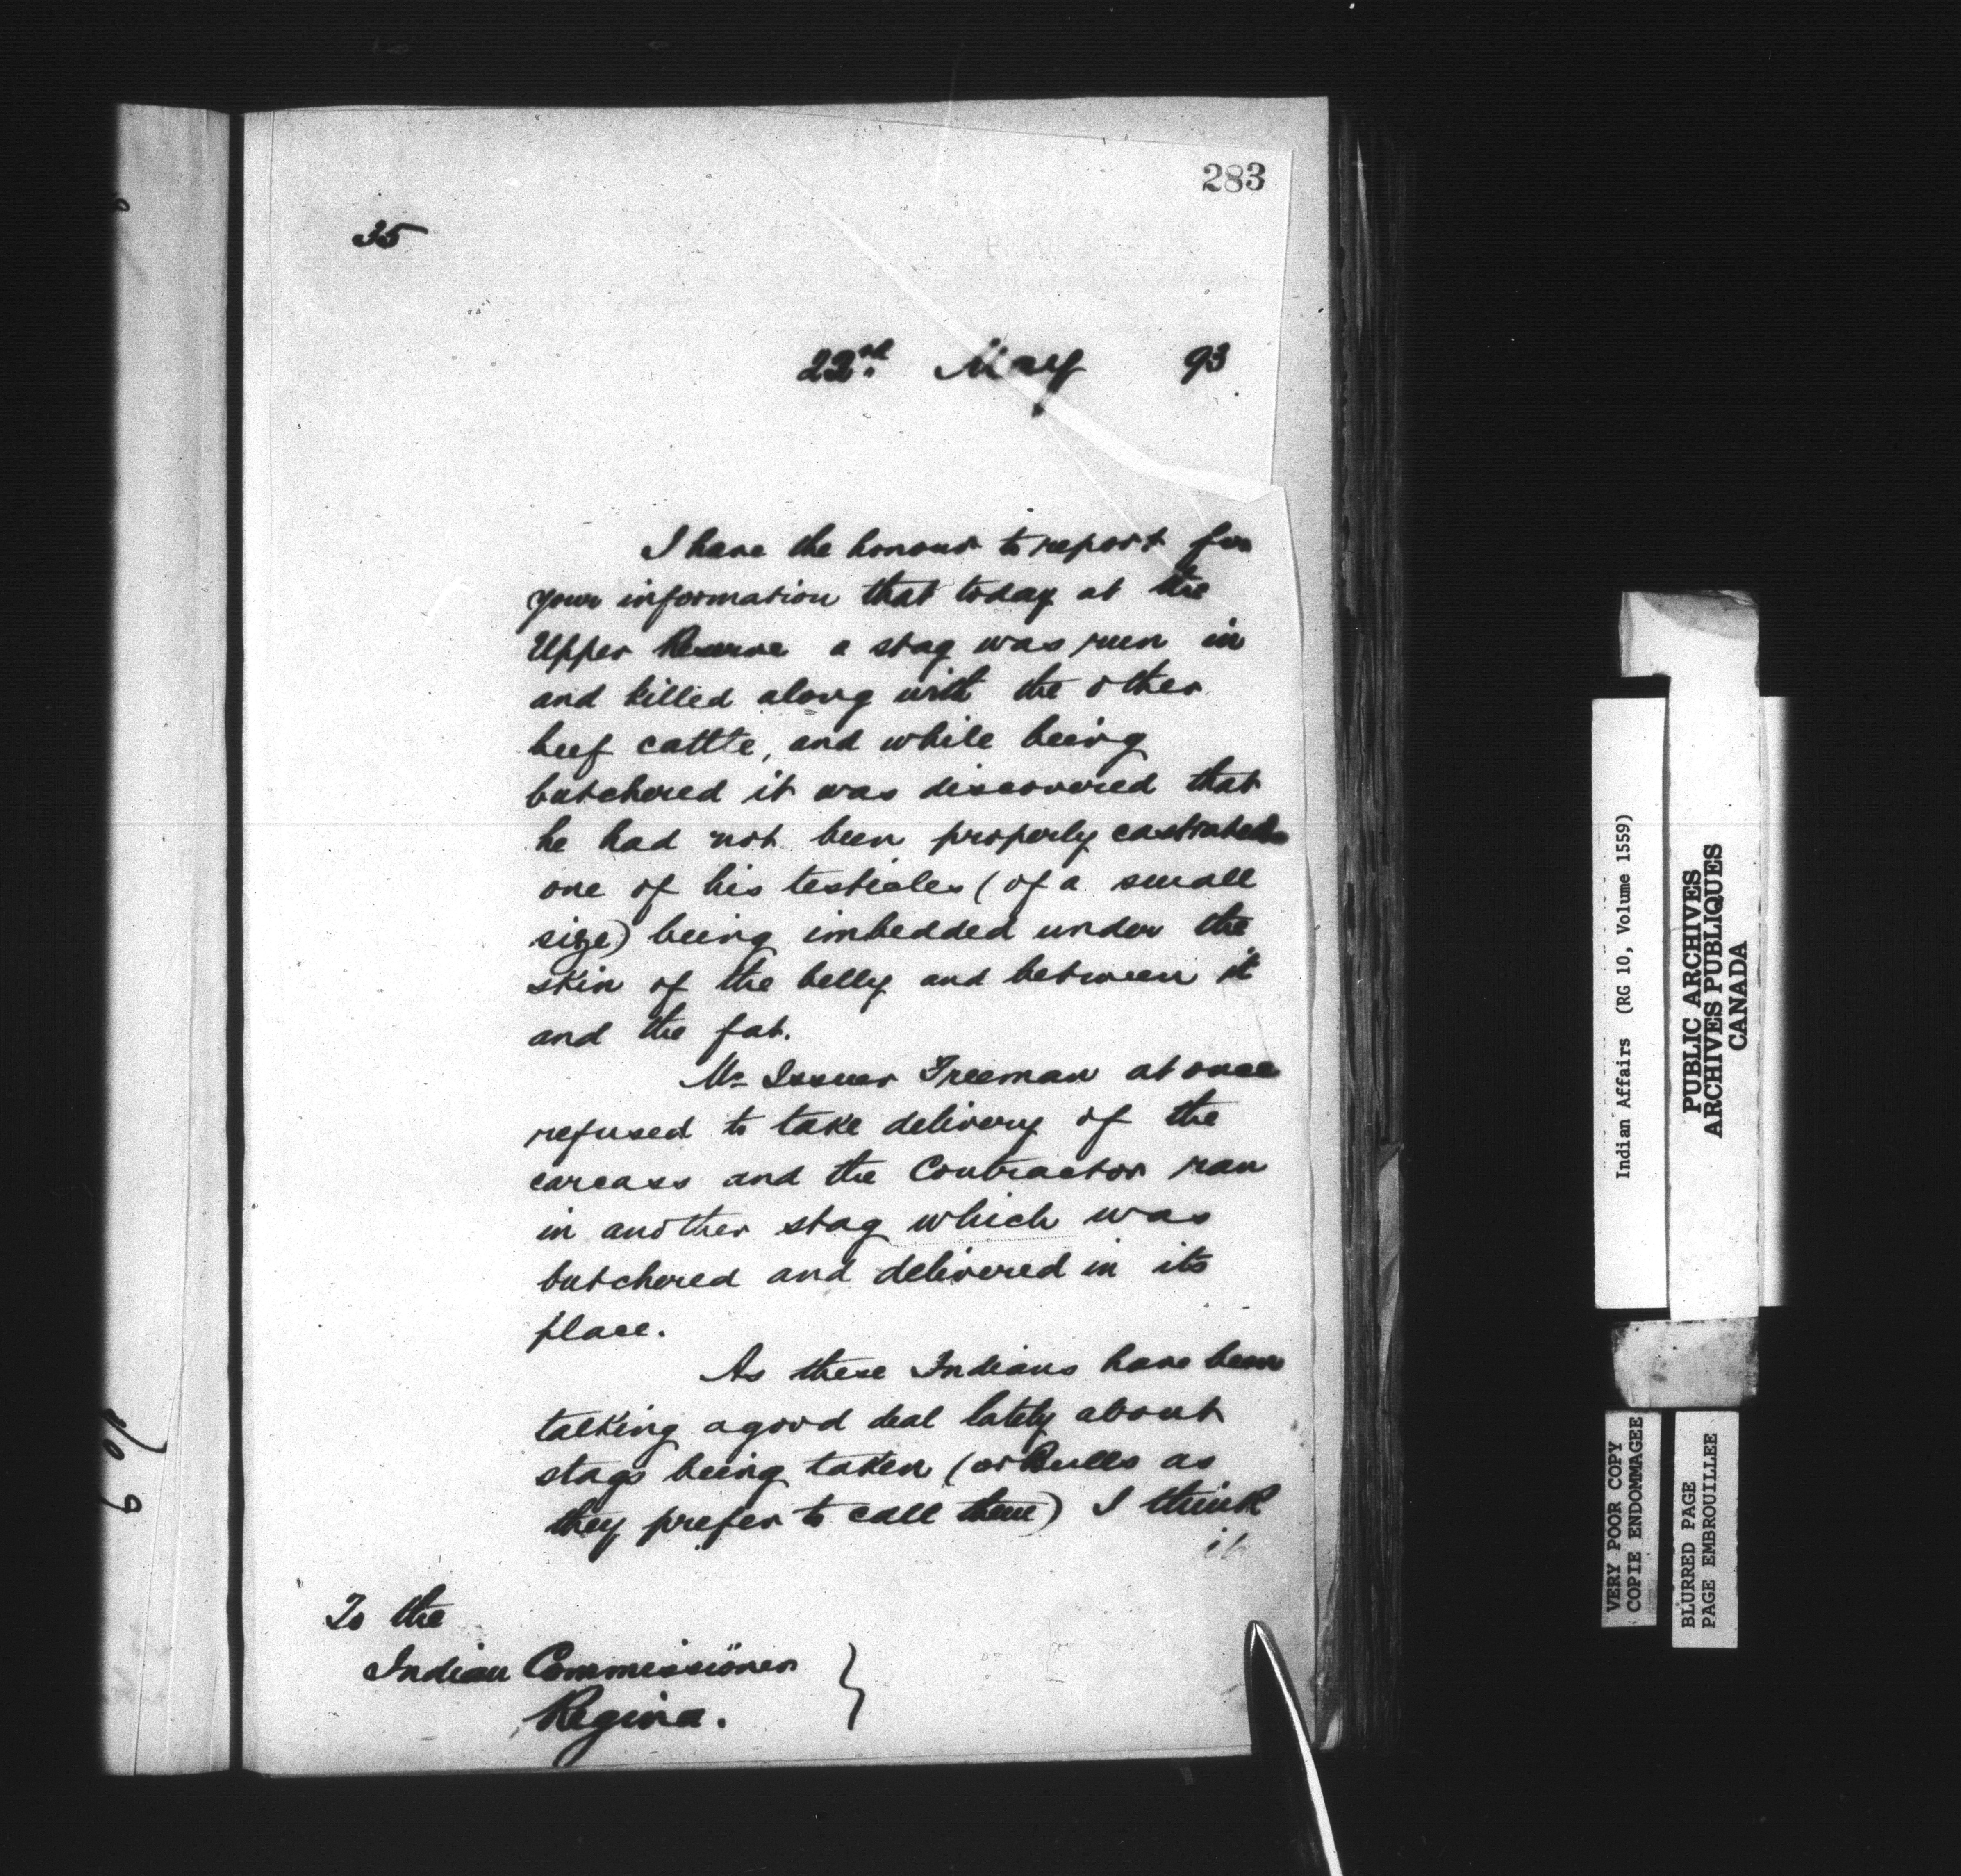 283
35
22nd. May 93
I have the honour to report for
your information that today at the
Upper Reserve a stag was run in
and killed along with the other
beef cattle, and while being
butchered it was discovered that
he had not been properly castrated
one of his testicles (of a small
size) being imbedded under the
skin of the belly and between it
and the fat.
Mr Issuer Freeman at once
refused to take delivery of the
carcass and the Contractor ran
in another stag which was
butchered and delivered in its
place.
As these Indians have been
talking a good deal lately about
stags being taken (or Bulls as
they prefer to call them) I think
it
To the
Indian Commissioner
Regina.
Indian Affairs (RG 10, Volume 1559)
PUBLIC ARCHIVES
ARCHIVES PUBLIQUES
CANADA
VERY POOR COPY
COPIE ENDOMMAGEE
BLURRED PAGE
PAGE EMBROUILLEE